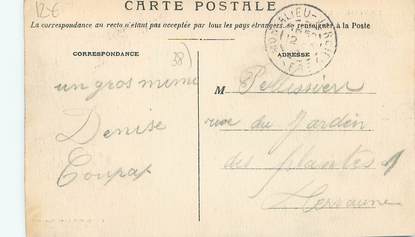 12€
CARTE POSTALE
La correspondance au recto n'étant pas acceptée par tous les pays étrangers, se renseigner à la Poste
CORRESPONDANCE
38)
ADRESSE
M Pellissier
un gros mimi
rue du Jardin
Denise
des plantes